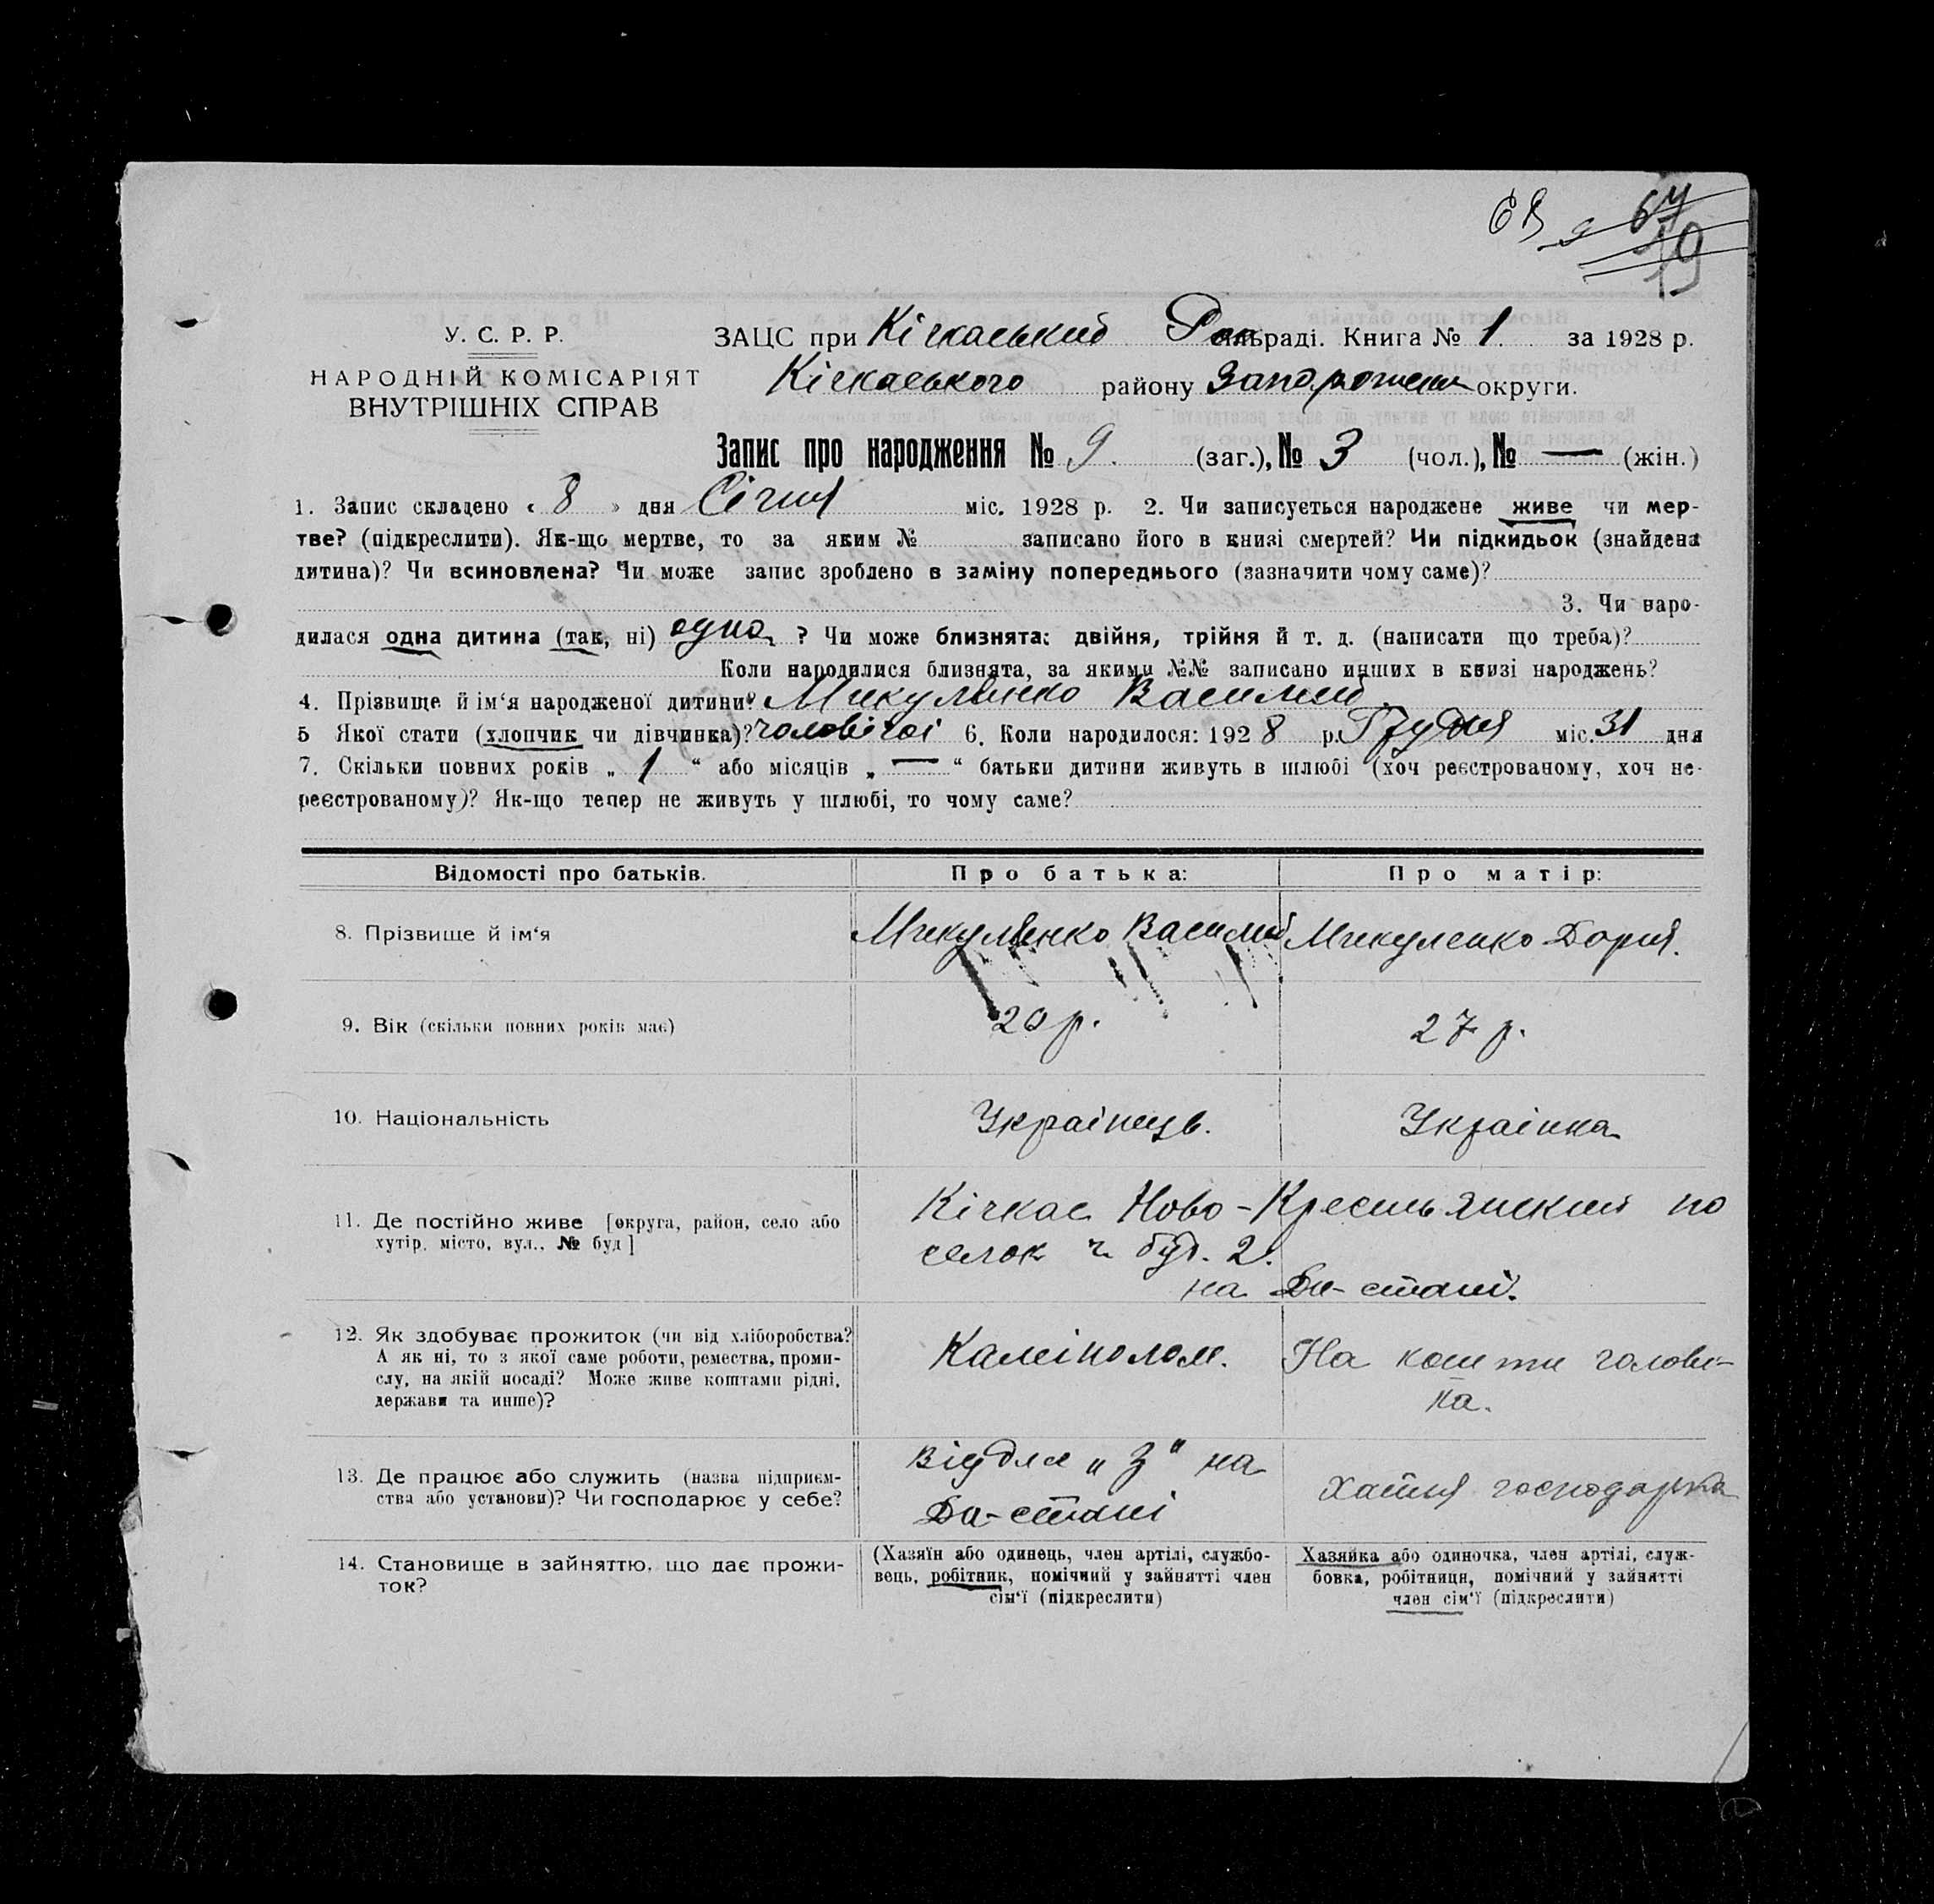 68 9 67
19
У. С. Р. Р.
НАРОДНІЙ КОМІСАРІЯТ
ВНУТРІШНІХ СПРАВ
ЗАЦС при Кічкаський Рай раді. Книга № 1 за 1928 р.
Кічкаського району Запорожськ округи.
Запис про народження № 9. (заг.), № 3 (чол.), № — (жін.)
1. Запис складено « 8 » дня Січня міс. 1928 р. 2. Чи записується народжене живе чи мер-
тве? (підкреслити). Як-що мертве, то за яким № записано його в книзі смертей? Чи підкидьок (знайдена
дитина)? Чи всиновлена? Чи може запис зроблено в заміну попереднього (зазначити чому саме)?
3. Чи наро-
дилася одна дитина (так, ні) одна ? Чи може близнята: двійня, трійня й т. д. (написати що треба)?
Коли народилися близнята, за якими №№ записано инших в книзі народжень?
4. Прізвище й ім'я народженої дитини? Микуленко Василий
5 Якої стати (хлопчик чи дівчинка)? чоловічої 6. Коли народилося: 1928 р. Грудня міс. 31 дня
7. Скільки повних років „ 1 “ або місяців „ — “ батьки дитини живуть в шлюбі (хоч реєстрованому, хоч не-
реєстрованому)? Як-що тепер не живуть у шлюбі, то чому саме?
Відомості про батьків. Про батька: Про матір:
8. Прізвище й ім'я Микуленко Василий Микуленко Дория.
9. Вік (скільки повних років має) 29 р. 27 р.
10. Національність Українець. Українка
11. Де постійно живе [округа, район, село або
хутір, місто, вул., № буд]
Кічкас Ново-Кресьянский по
селок ч буд. 2.
на Дн-стані.
12. Як здобуває прожиток (чи від хліборобства?
А як ні, то з якої саме роботи, ремества, проми-
слу, на якій посаді? Може живе коштами рідні,
держави та инше)?
Каміполом.
На кошти чолові-
ка.
13. Де працює або служить (назва підприєм-
ства або установи)? Чи господарює у себе?
Відділ „З“ на
Дн-стані
Хатня господарка
14. Становище в зайняттю, що дає прожи-
ток?
(Хазяїн або одинець, член артілі, службо-
вець, робітник, помічний у зайнятті член
сім'ї (підкреслити)
Хазяйка або одиночка, член артілі, служ-
бовка, робітниця, помічний у зайнятті
член сім'ї (підкреслити)